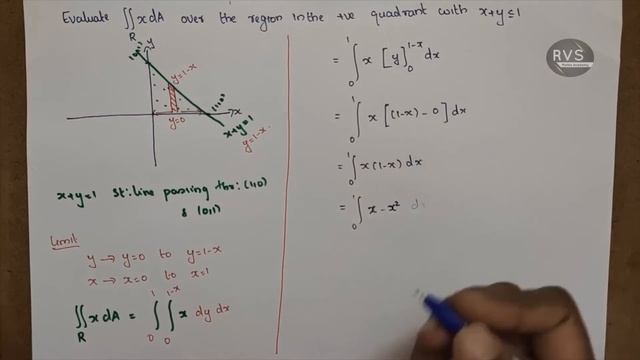 Evaluate ∬ x dA over the region in the +ve quadrant with x+y≤1
R
y
(0,1)
y=1-x
(1,0)
x
y=0
x+y=1
y=1-x
x+y=1 St. line passing thro: (1,0)
& (0,1)
Limit
y → y=0 to y=1-x
x → x=0 to x=1
∬_R x dA = ∫_0^1 ∫_0^{1-x} x dy dx
RVS
= ∫_0^1 x [y]_0^{1-x} dx
= ∫_0^1 x [(1-x) - 0] dx
= ∫_0^1 x(1-x) dx
= ∫_0^1 x - x² d